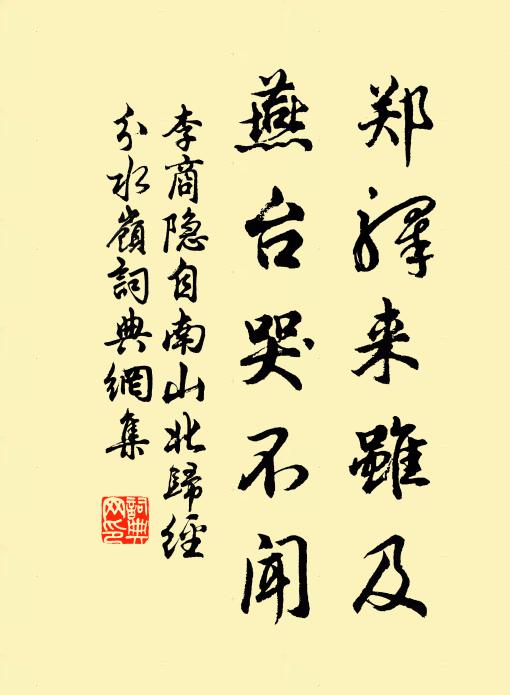 郑驿来虽及
燕台哭不闻
李商隐自南山北歸经
分水嶺詞典網集
詞典
网印